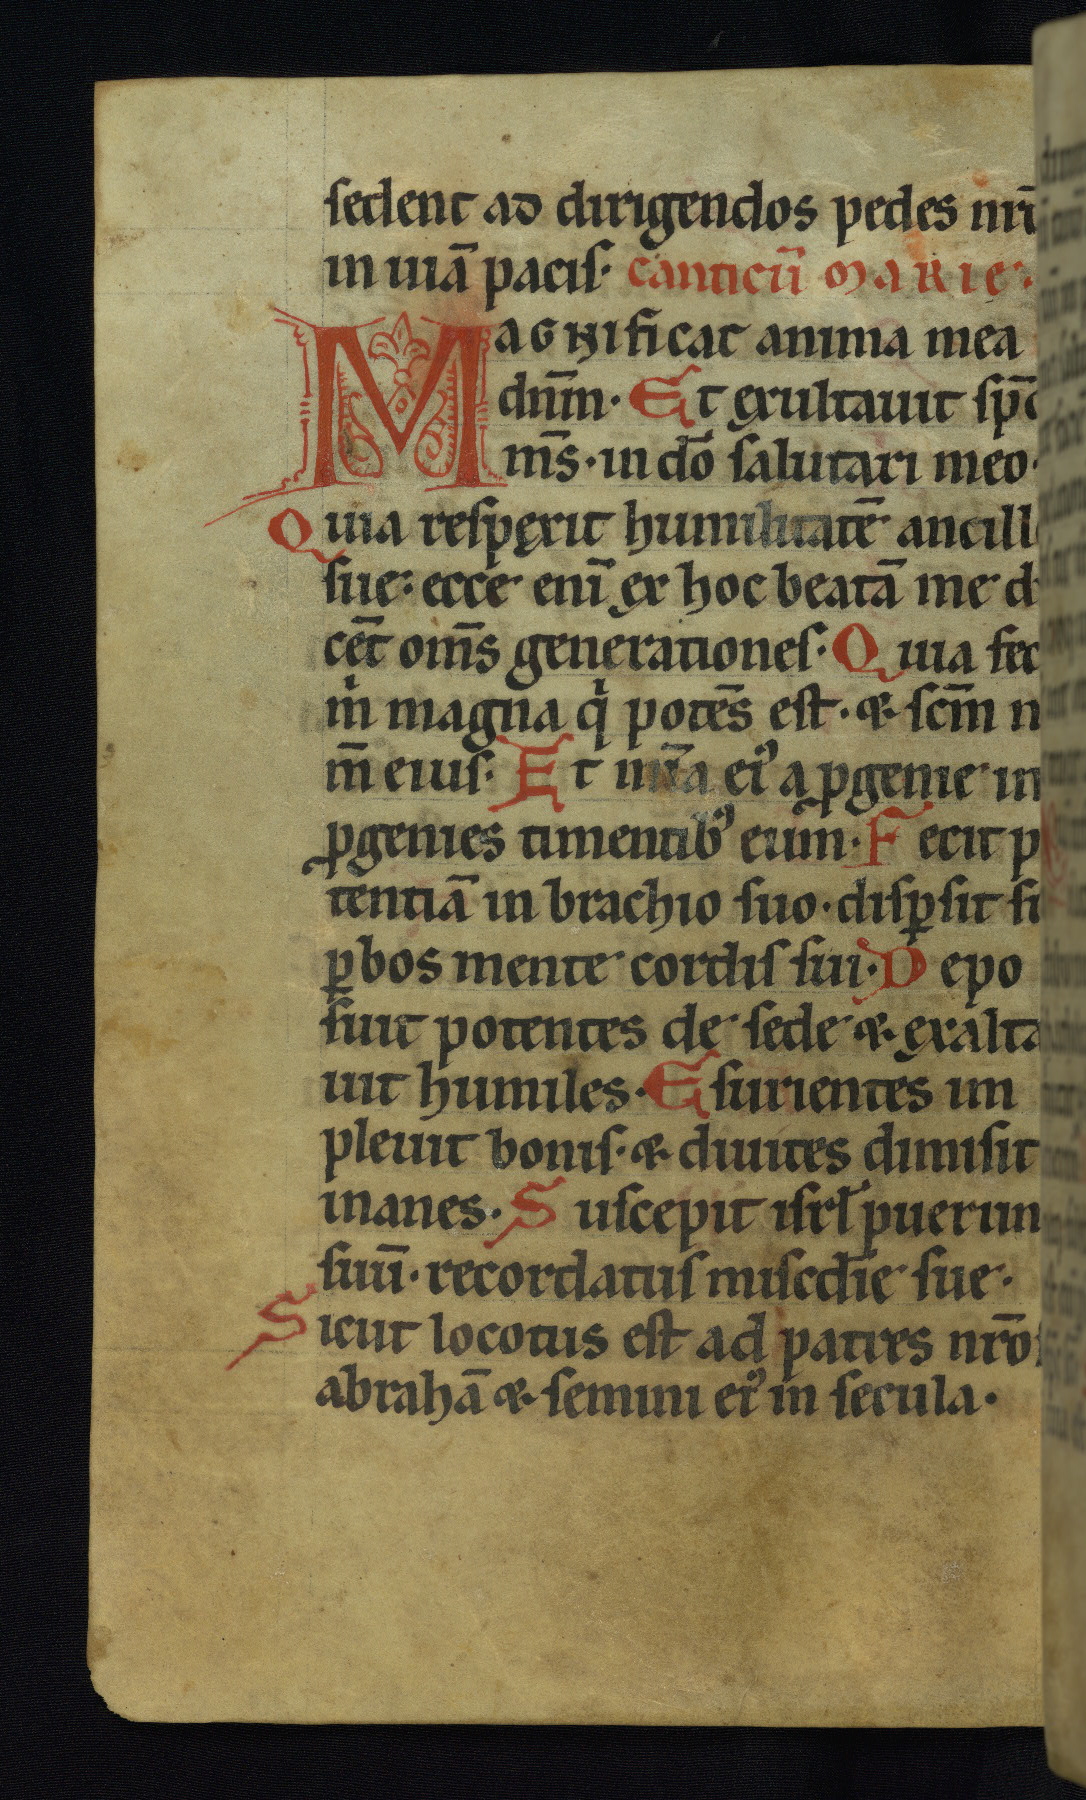 sedent ad dirigendos pedes nr̄
in uiā pacis. canticū MARIE.
MAGNificat anima mea
dn̄m. Et exultauit sp̄c
m̄s. in dō salutari meo.
Quia respexit humilitatē ancill
sue: ecce eni̅ ex hoc beatā me di
cēt om̄s generationes. Quia fec
m̍ magna q̍ potēs est. & sc̄m n
m̄ eius. Et mīa eiꝰ a ꝓgenie in
ꝓgenies timentibꝰ eum. Fecit p
tentiā in brachio suo. disꝑsit su
ꝑbos mente cordis sui. Depo
suit potentes de sede & exalta
uit humiles. Esurientes im
pleuit bonis. & diuites dimisit
inanes. Suscepit isrl̄ puerum
suū. recordatus misc̄die sue.
Sicut locotus est ad patres nr̄os
abrahā & semini eiꝰ in secula.